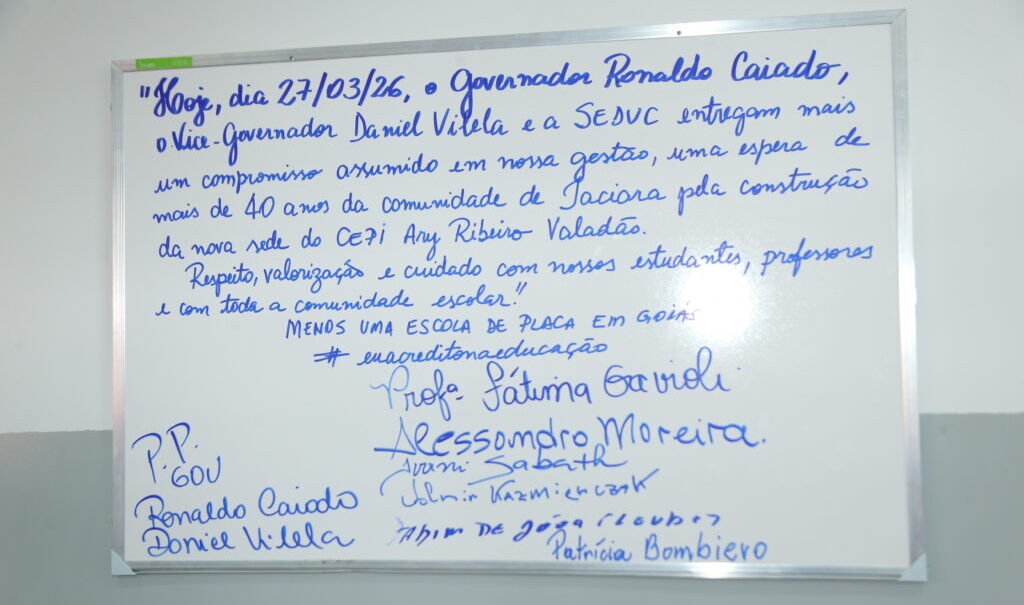 "Hoje, dia 27/03/26, o Governador Ronaldo Caiado,
o Vice-Governador Daniel Vilela e a SEDUC entregam mais
um compromisso assumido em nossa gestão, uma espera de
mais de 40 anos da comunidade de Jaciara pela construção
da nova sede do CEPI Ary Ribeiro Valadão.
Respeito, valorização e cuidado com nossos estudantes, professores
e com toda a comunidade escolar."
MENOS UMA ESCOLA DE PLACA EM GOIÁS
# euacreditonaeducação
Profª Fátima Gavioli
Alessandro Moreira.
Sabath
KAZMIERCZAK
DE
Patrícia Bombiero
P.P.
GOV
Ronaldo Caiado
Daniel Vilela